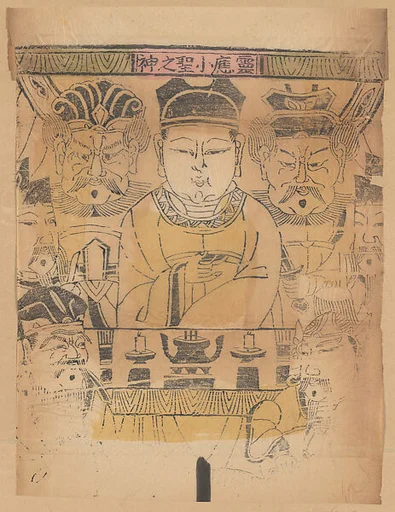 靈應小聖之神